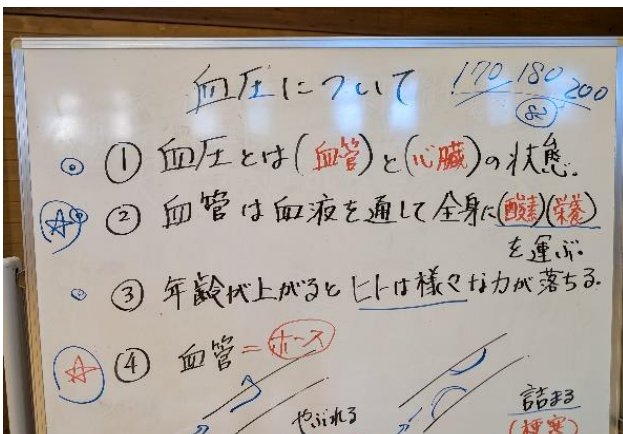 血圧について
170 180 200
① 血圧とは(血管)と(心臓)の状態.
② 血管は血液を通して全身に(酸素)(栄養)
を運ぶ.
③ 年齢が上がるとヒトは様々な力が落ちる.
④ 血管=ホース
やぶれる
詰まる
(梗塞)